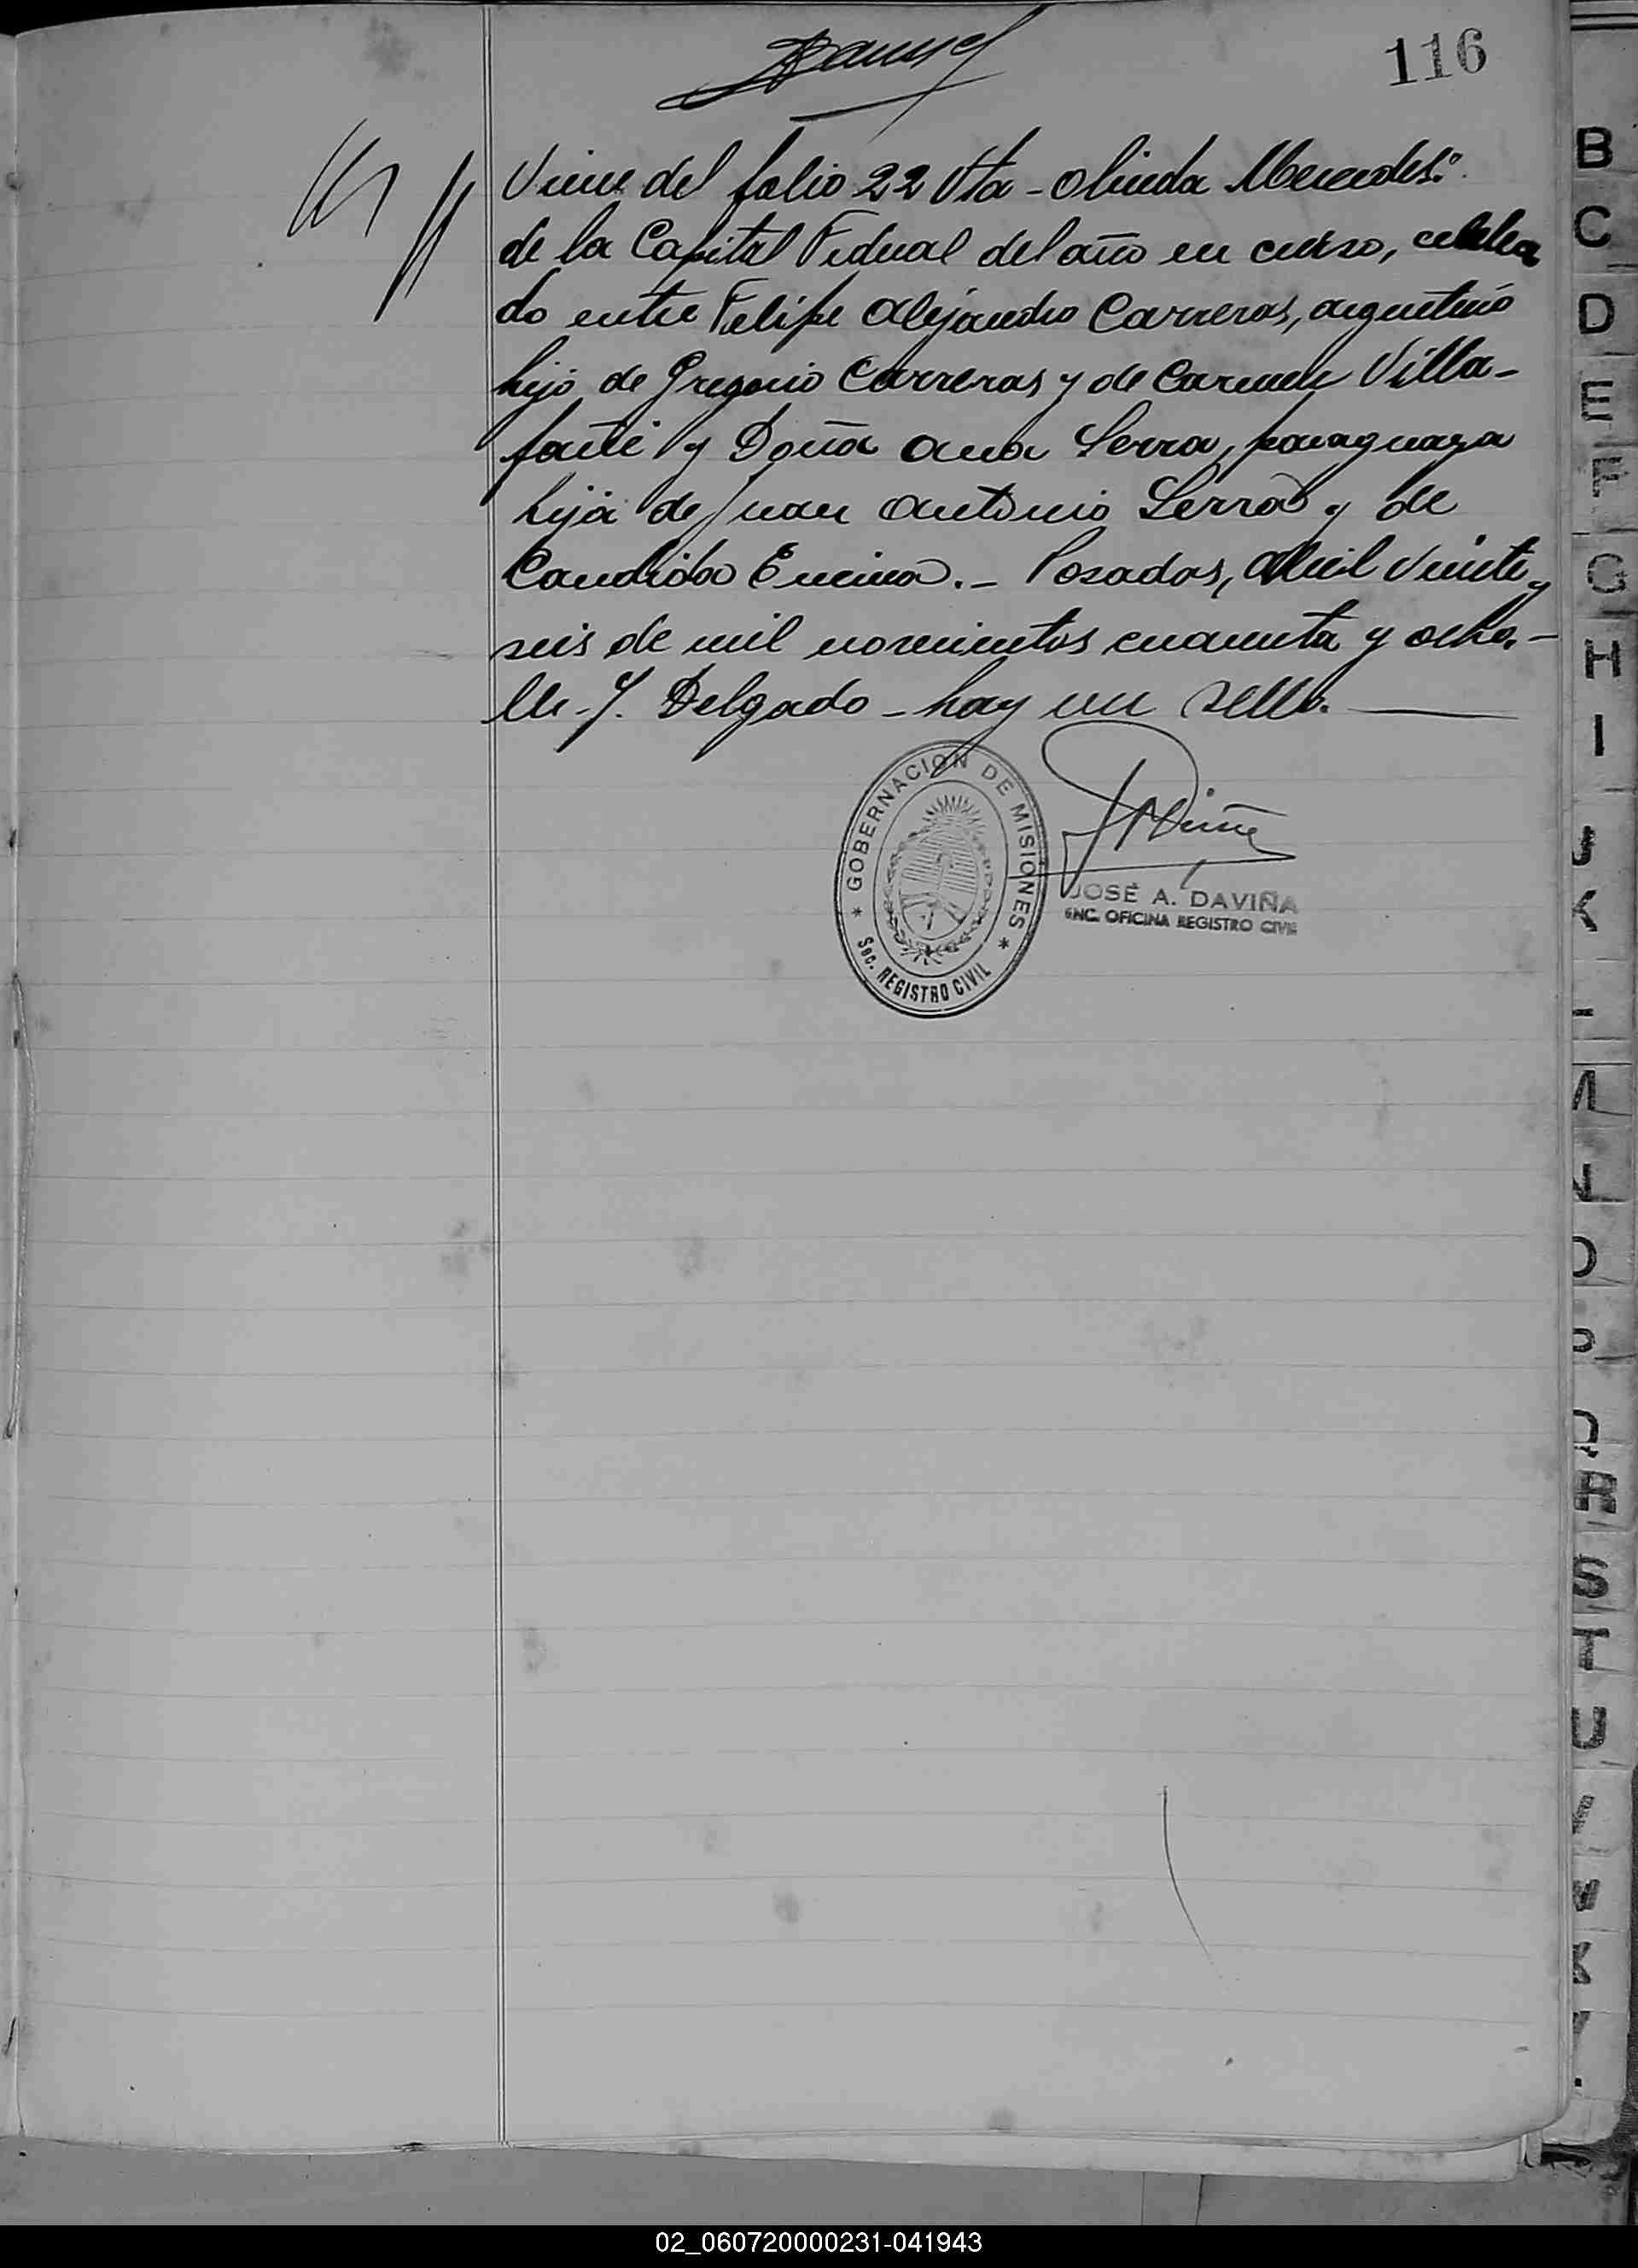 116
Viene del folio 22 Vta - Olinda Mercedes:
de la Capital Federal del año en curso, celebra
do entre Felipe Alejandro Carreras, argentino
hijo de Gregorio Carreras y de Carmen Villa-
fañe y Doña Ana Serra, paraguaya
hija de Juan Antonio Serra y de
Candida Encina.- Posadas, Abril Veinte y
seis de mil novecientos cuarenta y ocho.-
M. J. Delgado - hay un sello.
GOBERNACION DE MISIONES
Sec. REGISTRO CIVIL
JOSÉ A. DAVIÑA
ENC. OFICINA REGISTRO CIVIL
B
C
D
E
F
G
H
I
J
K
L
M
N
O
P
Q
R
S
T
U
V
W
X
Y
02_060720000231-041943